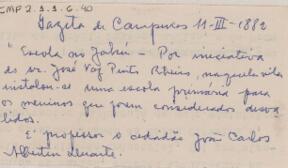 CMP 2.1.1.6.40
Gazeta de Campinas 11-III-1882
"Escola no Jahú - Por iniciativa
do sr. José Vaz Pinto Ribeiro, naquela vila
instalou-se uma escola primária para
os meninos que forem considerados desva-
lidos.
E' professor o cidadão João Carlos
Alberten Duarte.